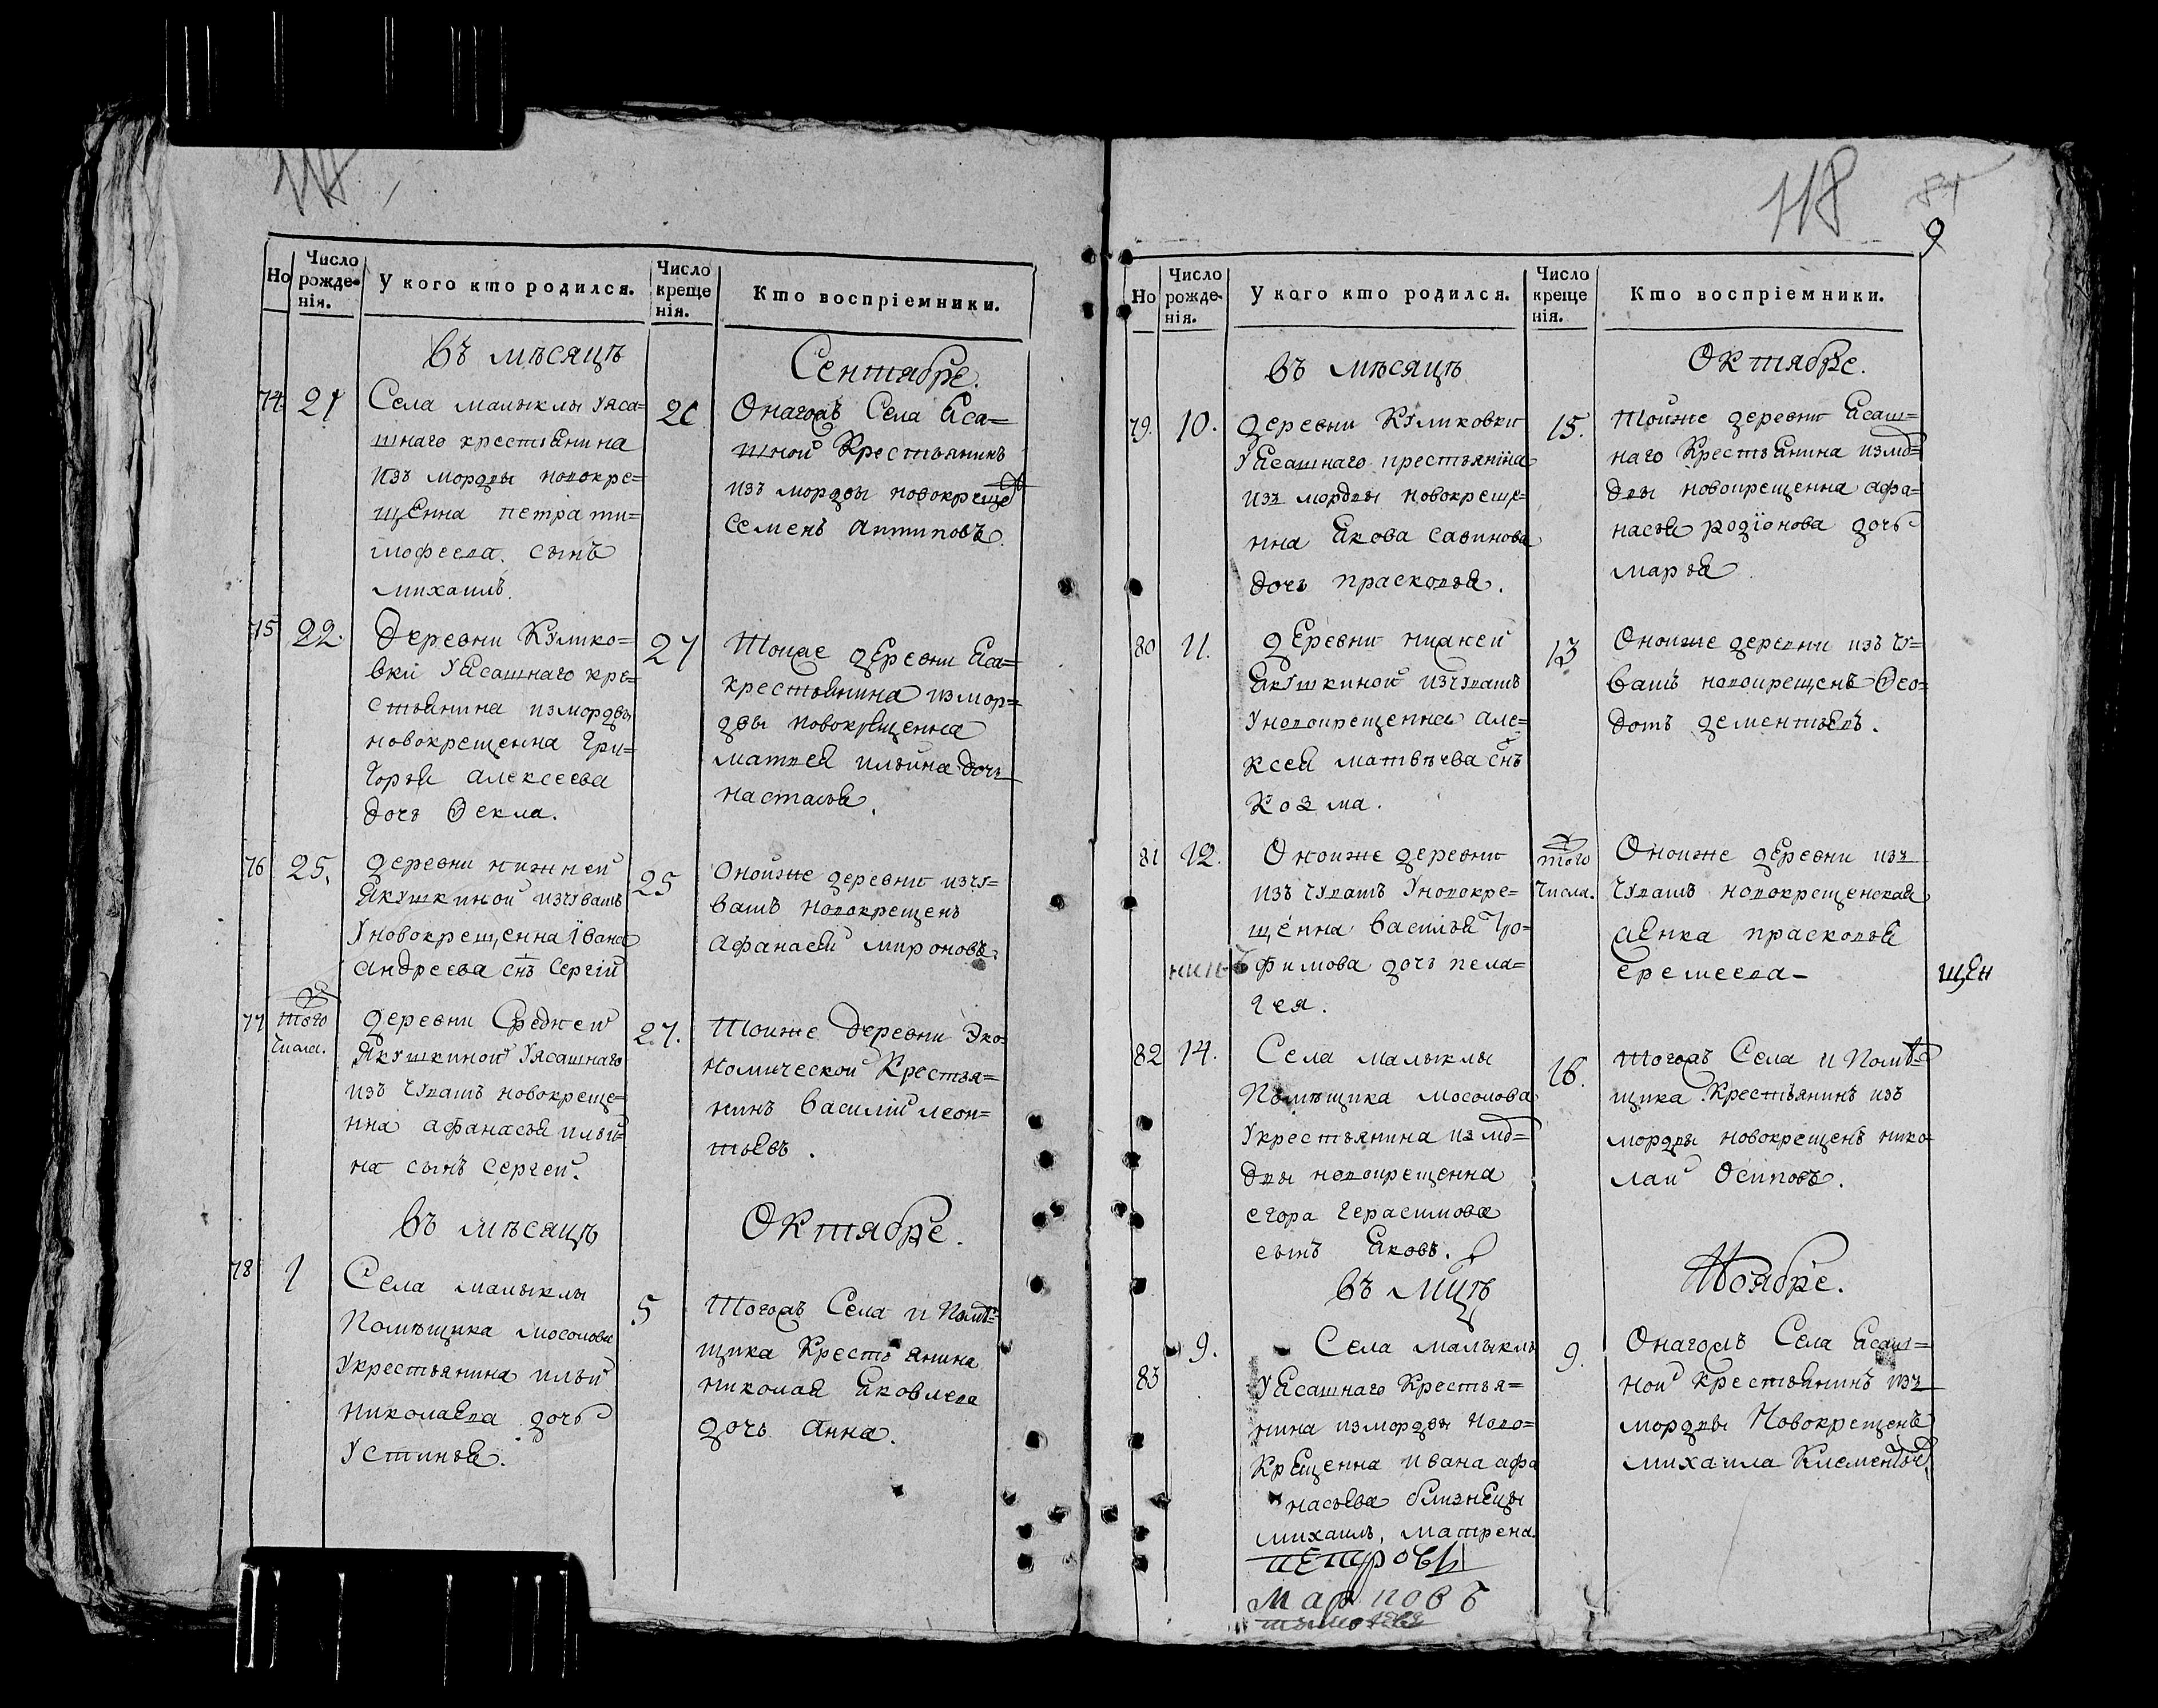 118
Но
Число рожде-нія.
У кого кто родился.
Число креще нія.
Кто воспріемники.
въ мѣсяцѣ
Сентябре.
74. 21
Села малыклы Уяса=
шнаго крестьянина
изъ мордвы новокре=
щенна петра ти=
мофеева. сынъ
михаилъ.
26
Онагожъ Села Яса=
шной Крестьянинъ
изъ мордвы новокрещe
Семенъ Антиповъ.
75 22.
Деревни Кулико=
вки Уясашнаго кре=
стьянина измордвы
новокрещенна Гри=
горья алексеева
дочь Ѳекла.
27
Тоиже деревни Яса=
крестьянина измор=
двы новокрещенна
матвея ильина дочь
настасья.
76 25.
деревни нижней
Якушкиной изчувашъ
Уновокрещенна Iвана
андреева снъ Сергiй
25
Оной же деревни изчу=
вашъ новокрещенъ
Афанасей мироновъ.
77 того числа.
деревни Средней
Якушкиной Уясашнаго
изъ чувашъ новокреще=
нна афанасья ильи=
на сынъ Сергей.
27.
Тоиже деревни Эко=
номической Крестья=
нинъ Василiй леон=
тьевъ.
въ мѣсяцѣ
Октябре.
78 1
Села малыклы
Помѣщика мосолова
Укрестьянина ильи
николаева дочь
Устинья.
5
Тогожъ Села и Помѣ=
щика Крестьянина
николая Яковлева
дочь Анна.
118
9
Но
Число рожде-нія.
У кого кто родился.
Число креще нія.
Кто воспріемники.
въ мѣсяцѣ
Октябре.
79. 10.
деревни Куликовки
Уясашнаго крестьянiна
изъ мордвы новокреще=
нна Якова Савинова
дочь прасковья.
15.
Тойже деревни Ясаш=
наго Крестьянина измо=
двы новокрещенна афа=
насья родiонова дочь
марья
80 11.
деревни нижней
Якушкиной изчувашъ
Уновокрещенна Але=
ксея матвѣева снъ
Козма.
13
Оноиже деревни изъ чу=
вашъ новокрещенъ Ѳео=
дотъ дементьевъ.
81 12.
Оноиже деревни
изъ чувашъ Уновокре=
щенна Василья Тро=
фимова дочь пела=
гея.
того числа.
Оноиже деревни изъ
чувашъ новокрещенская
прасковья
еремеева-
щен
82 14.
Села малыклы
Помѣщика мосолова
Укрестьянина измо=
двы новокрещенна
егора Герасимова
сынъ Яковъ.
16.
Тогожъ Села и Помѣ=
щика Крестьянинъ изъ
мордвы новокрещенъ нико
лай Осиповъ.
въ мцѣ
Ноябре.
83 9.
Села малыклы
Уясашнаго Крестья=
нина измордвы Ново=
Крещенна ивана афа
насьева близнецы
михаилъ, матрена.
петровъ
9.
Онагожъ Села Ясаш=
ной крестьянинъ изъ
мордвы Новокрещенъ
михаила Клементьевъ